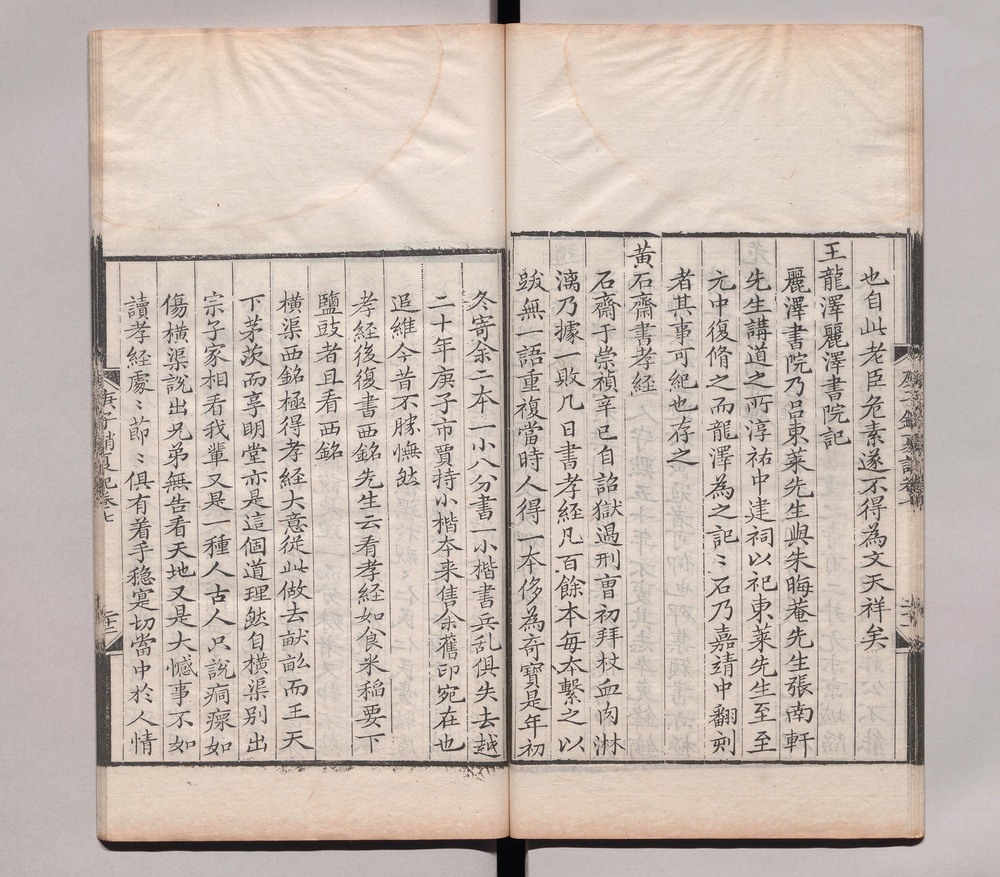 也自此老臣危素遂不得為文天祥矣
王龍澤麗澤書院記
麗澤書院乃呂東萊先生與朱晦菴先生張南軒
先生講道之所淳祐中建祠以祀東萊先生至至
元中復脩之而龍澤為之記〻石乃嘉靖中翻刻
者其事可紀也存之
黃石齋書孝經
石齋于崇禎辛巳自詔獄過刑曹初拜杖血肉淋
漓乃據一敗几日書孝經凡百餘本每本繫之以
跋無一語重複當時人得一本侈為奇寶是年初
冬寄余二本一小八分書一小楷書兵乱俱失去越
二十年庚子市賈持小楷本来售余舊印宛在也
追維今昔不勝憮然
孝經後復書西銘先生云看孝經如食米稻要下
鹽豉者且看西銘
橫渠西銘極得孝經大意從此做去畎畝而王天
下茅茨而享明堂亦是這個道理然自橫渠别出
宗子家相看我輩又是一種人古人只說痌瘝如
傷橫渠說出兄弟無告看天地又是大憾事不如
讀孝經處〻節〻俱有着手穏寔切當中於人情
庚子銷夏記卷七
二十二